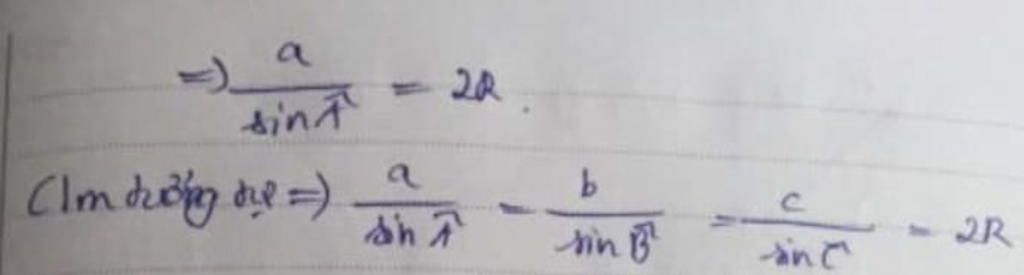 => a/sin Â = 2R.
C/m tương tự => a/sin Â = b/sin B̂ = c/sin Ĉ = 2R